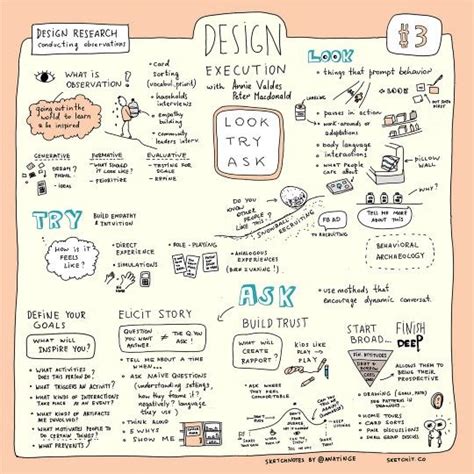 DESIGN RESEARCH
conducting observations
WHAT IS
OBSERVATION?
going out in the
world to learn
& be inspired
• card
sorting
households
interviews
• empathy
building
• community
leaders interv.
GENERATIVE
FORMATIVE
EVALUATIVE
• DREAM?
• IDEAL
WHAT SHOULD
IT LOOK LIKE?
• PRIORITIZE
• TESTING FOR
SCALE
• REFINE
DESIGN
EXECUTION
with Annie Valdes
Peter Macdonald
LOOK
TRY
ASK
#3
LOOK
• things that prompt behavior
NOT DATA
FIRST
• pauses in action
• work-arounds or
adaptations
• body language
interactions
• WHAT PEOPLE
care about
PILLOW
WALL
WHY?
TELL ME MORE
ABOUT THIS
BEHAVIORAL
ARCHAEOLOGY
TRY
BUILD EMPATHY
& INTUITION
How is it
FEELS
LIKE?
• DIRECT
EXPERIENCE
• SIMULATIONS
• ROLE-PLAYING
• ANALOGOUS
EXPERIENCES
DO YOU
KNOW
OTHER
PEOPLE
LIKE YOU?
SNOWBALL RECRUITING
FB AD
TO RECRUITING
ASK
• use methods that
encourage dynamic conversat.
DEFINE YOUR
GOALS
WHAT WILL
INSPIRE YOU?
• WHAT ACTIVITIES
DOES THIS PERSON DO?
• WHAT TRIGGERS AN ACTIVITY?
• WHAT KINDS OF INTERACTIONS
TAKE PLACE AS AN EVENT?
• WHAT KINDS OF ARTIFACTS
ARE INVOLVED?
• WHAT MOTIVATES PEOPLE TO
DO CERTAIN THINGS?
• WHAT PREVENTS?
ELICIT STORY
QUESTION
YOU WANT
ANSWERED
≠
THE Q. YOU
ASK!
• TELL ME ABOUT A TIME
WHEN...
• ASK NAIVE QUESTIONS
(understanding settings,
how they frame it?
negatively? language they
use)
• THINK ALOUD
• 5 WHYS
• SHOW ME
BUILD TRUST
WHAT WILL
CREATE
RAPPORT?
KIDS LIKE
PLAY
PLAY
• ASK WHERE
THEY FEEL
COMFORTABLE
START
BROAD...
FINISH
DEEP
ALLOWS THEM TO
BRING THEIR
PERSPECTIVE
• HOME TOURS
• CARD SORTS
• SMALL GROUP DISCUSS.
SKETCHNOTES BY @ANATINGE
SKETCHIT.CO